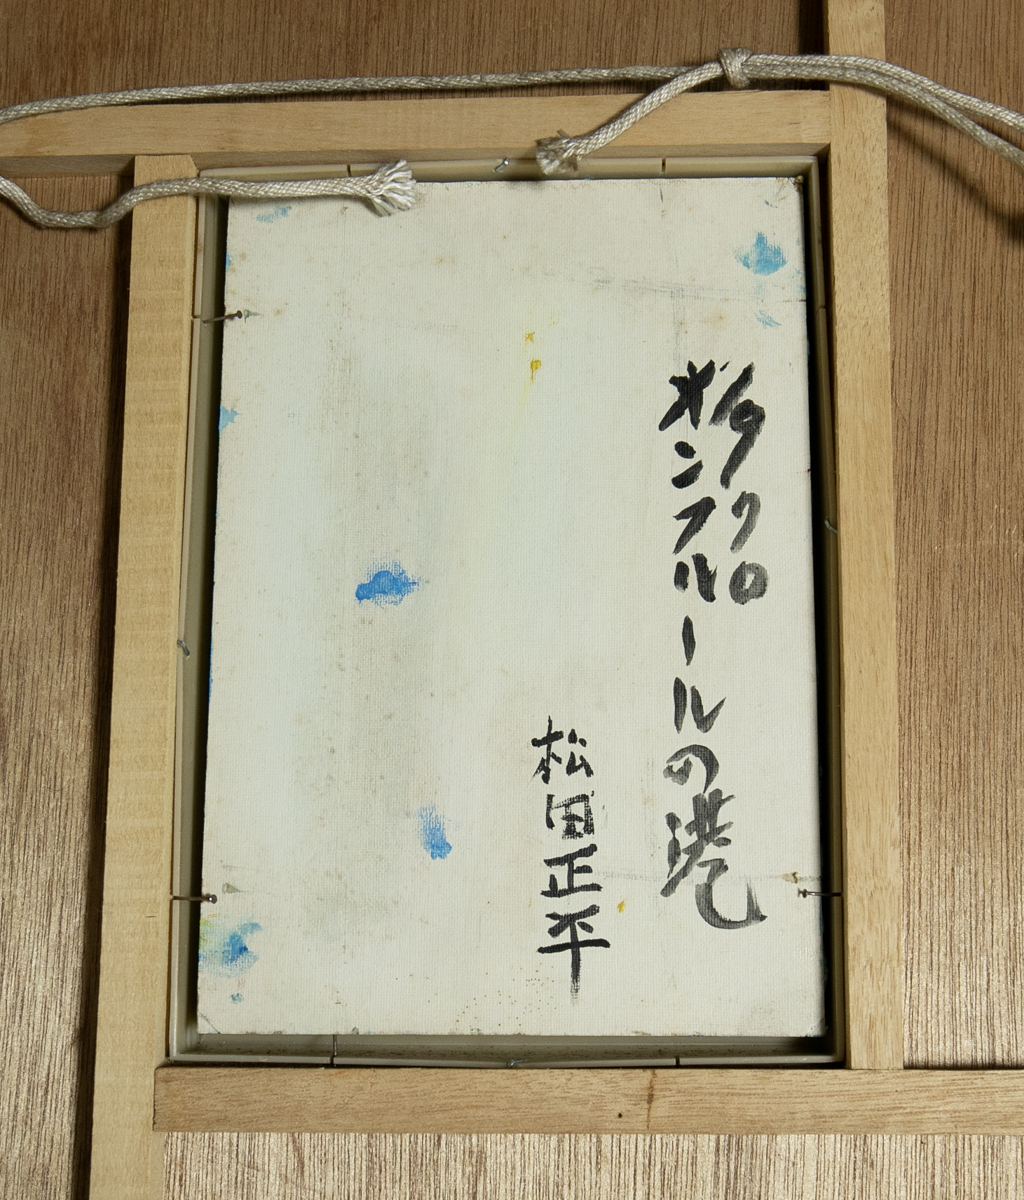 オンフルールの港
松田正平